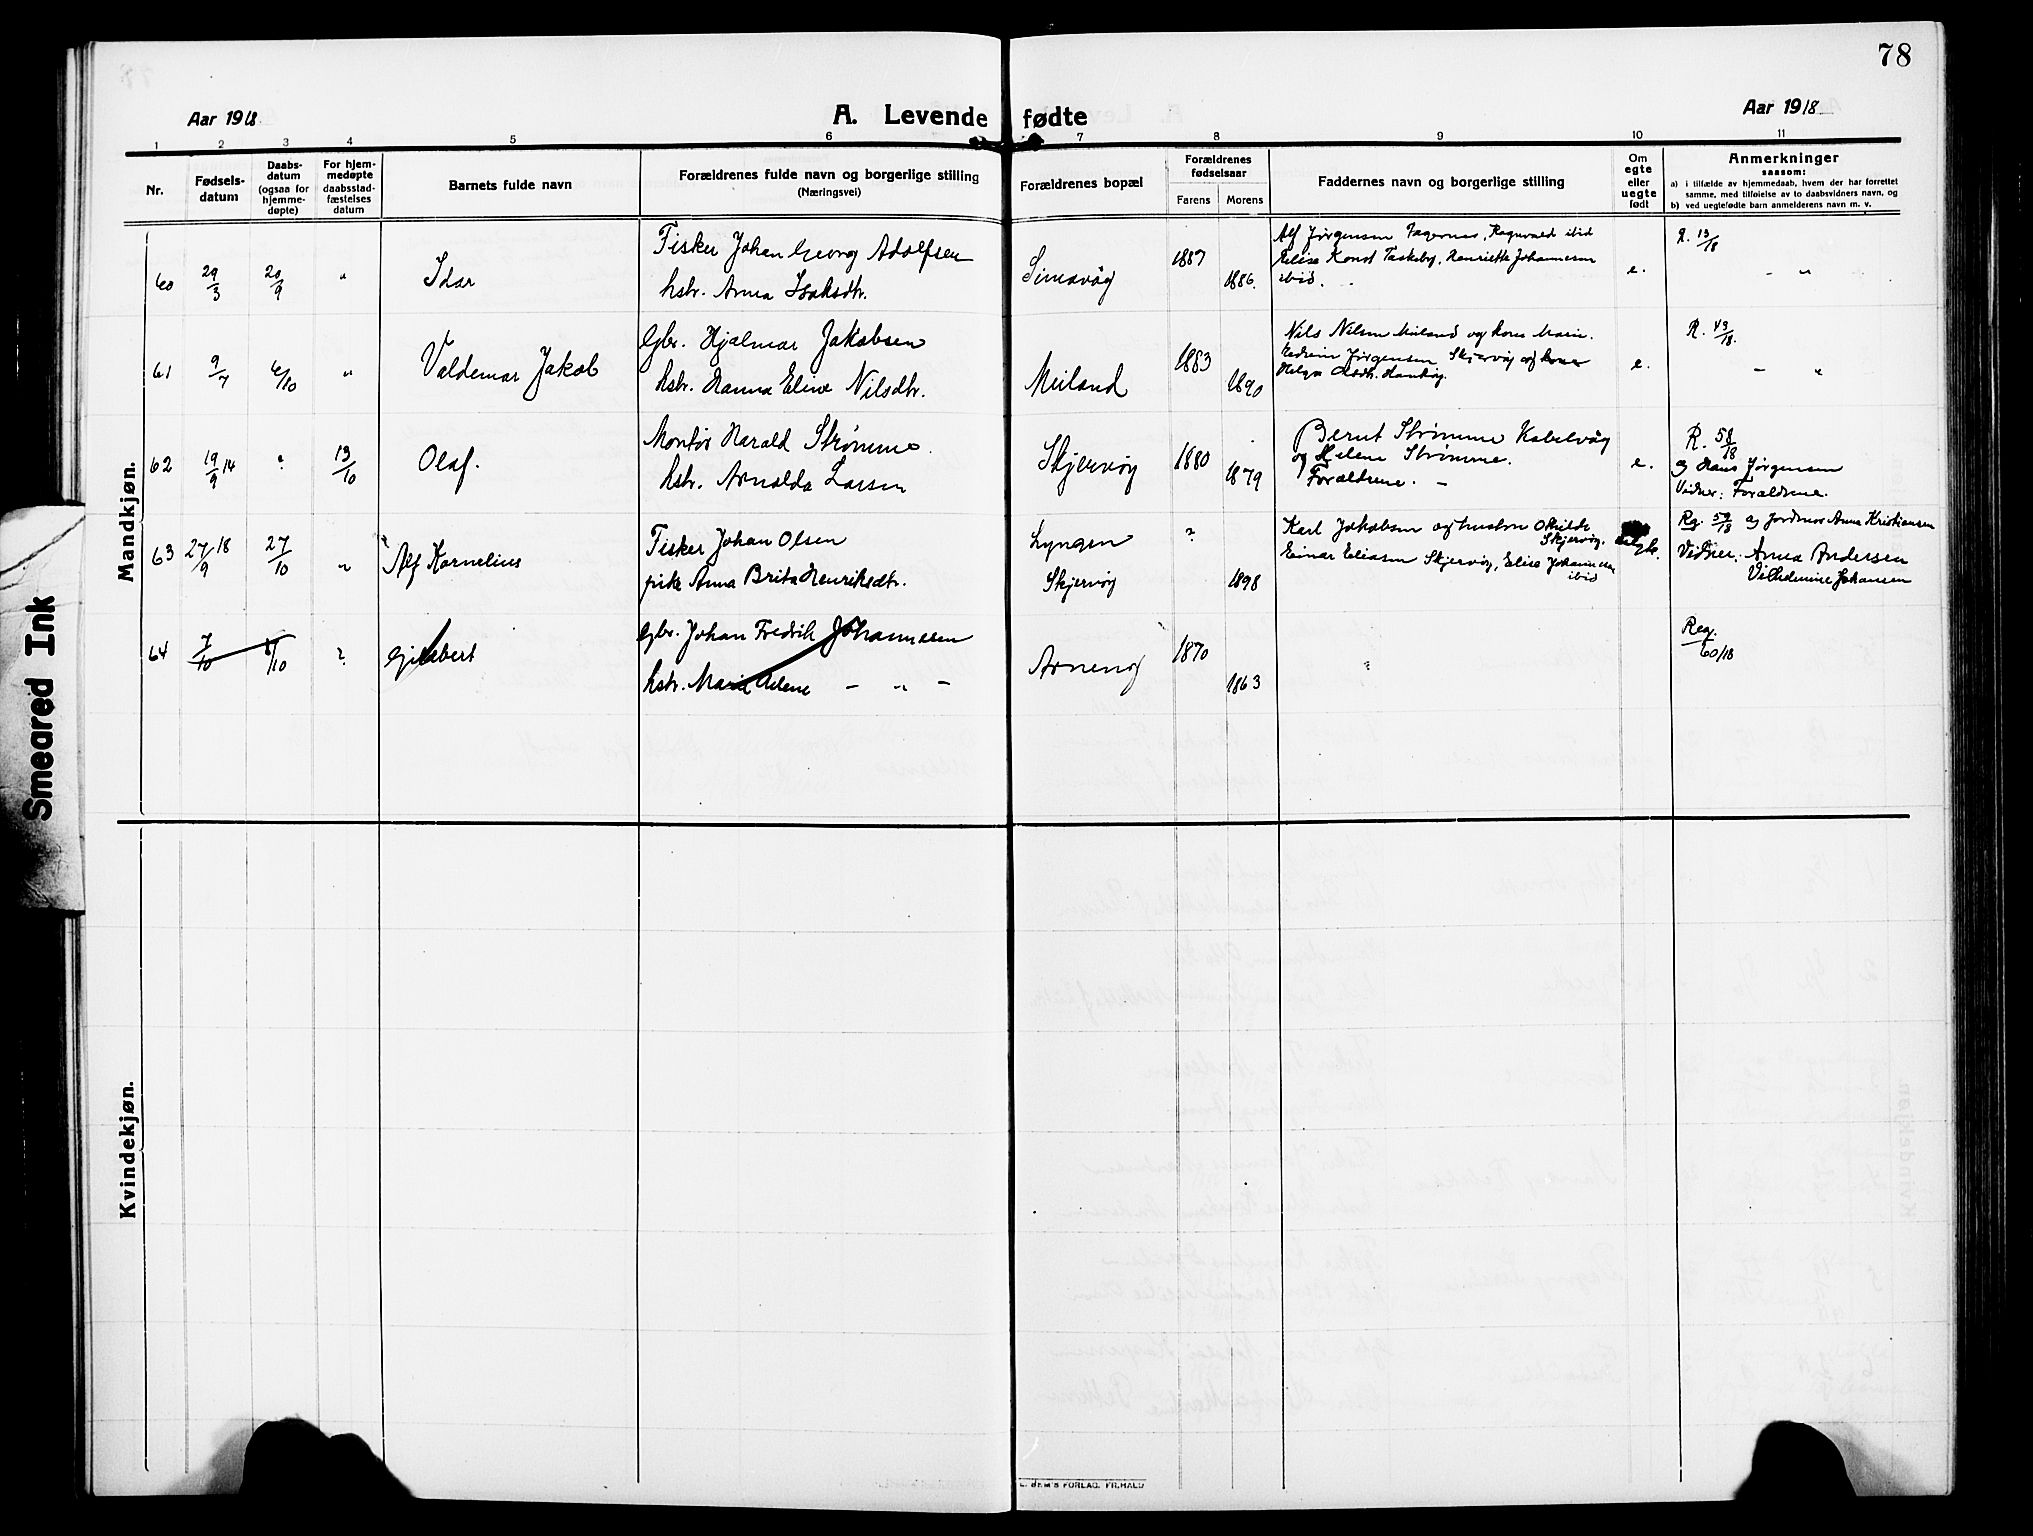 78
Aar 1918.
A. Levende fødte
Aar 1918
1 2 3 4 5 6 7 8 9 10 11
Nr.
Fødsels-
datum
Daabs-
datum
(ogsaa for
hjemme-
døpte)
For hjem-
medøpte
daabsstad-
fæstelses
datum
Barnets fulde navn
Forældrenes fulde navn og borgerlige stilling
(Næringsvei)
Forældrenes bopæl
Forældrenes
fødselsaar
Farens Morens
Faddernes navn og borgerlige stilling
Om
egte
eller
uegte
født
Anmerkninger
saasom:
a) i tilfælde av hjemmedaab, hvem der har forrettet
samme, med tilføielse av to daabsvidners navn, og
b) ved uegtefødte barn anmelderens navn m. v.
Mandkjøn.
60 29/3 20/9 " Idar
Fisker Johan Georg Adolfsen
hstr. Anna Isaksdtr.
1887
1886.
Alf Jørgensen Fagernes, Ragnvald ibid
Henriette Johannesen
ibid.
e.
R. 13/18
- "
61 9/7 6/10 " Valdemar Jakob
Gbr. Hjalmar Jakobsen
hstr. Hanna Eline Nilsdtr.
Meiland
1883
1890
Nils Nilsen Meiland og kone Marie.
Jørgensen Skjervøy og kone
Helga
e.
R. 43/18.
- "
62 19/9 14 " 13/10 Olaf.
Montør Harald Strømme.
hstr. Arnolda Larsen
Skjervøy
1880
1879
Bernt Strømme Kabelvåg
og Helene Strømme.
Forældrene. -
e.
R. 58/18
Hans Jørgensen
Vidner: Forældrene.
63 27/9 18 27/10 " Alf Kornelius
Fisker Johan Olsen
pike Anna Brita Henriksdtr.
Lyngen
Skjervøy
?
1898
Karl Jakobsen og hustru
Skjervøy.
Einar Eliasen Skjervøy, Elise Johannesen
ibid
Reg. 59/18 og Jordmor Anna Kristiansen
Vidner: Anna Andersen
Vilhelmine Johansen
64 7/10 8/10 ? Gisebert
Gbr. Johan Fredrik Johannesen
hstr. Marie Helene - " -
Arnenøy
1870
1863
"
Reg.
60/18
Kvindekjøn.
Smeared Ink
FORLAG. FR.HALD